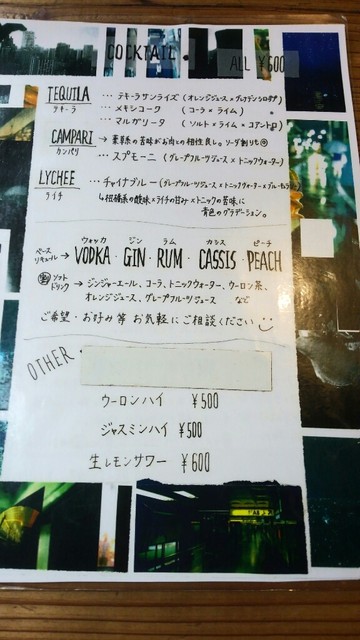 COCKTAIL・ ALL ¥600
TEQUILA … テキーラサンライズ (オレンジジュース×グレナデンシロップ)
テキーラ … メキシコーク (コーラ×ライム)
… マルガリータ (ソルト×ライム×コアントロー)
CAMPARI → 薬草系の苦味がお肉との相性良し。ソーダ割りも
カンパリ … スプモーニ (グレープフルーツジュース×トニックウォーター)
LYCHEE … チャイナブルー (グレープフルーツジュース×トニックウォーター×ブルーキュラソー)
ライチ ↳柑橘系の酸味×ライチの甘み×トニックの苦味に
青色のグラデーション。
ウォッカ ジン ラム カシス ピーチ
ベースリキュール→ VODKA・GIN・RUM・CASSIS・PEACH
割 ソフトドリンク → ジンジャーエール、コーラ、トニックウォーター、ウーロン茶、
オレンジジュース、グレープフルーツジュース など
ご希望・お好み等お気軽にご相談ください
OTHER・
ウーロンハイ ¥500
ジャスミンハイ ¥500
生レモンサワー ¥600